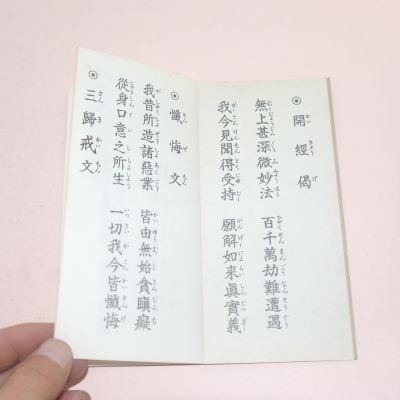 ◉開經偈
無上甚深微妙法 百千萬劫難遭遇
我今見聞得受持 願解如來眞實義
◉懺悔文
我昔所造諸惡業 皆由無始貪瞋癡
從身口意之所生 一切我今皆懺悔
◉三歸戒文